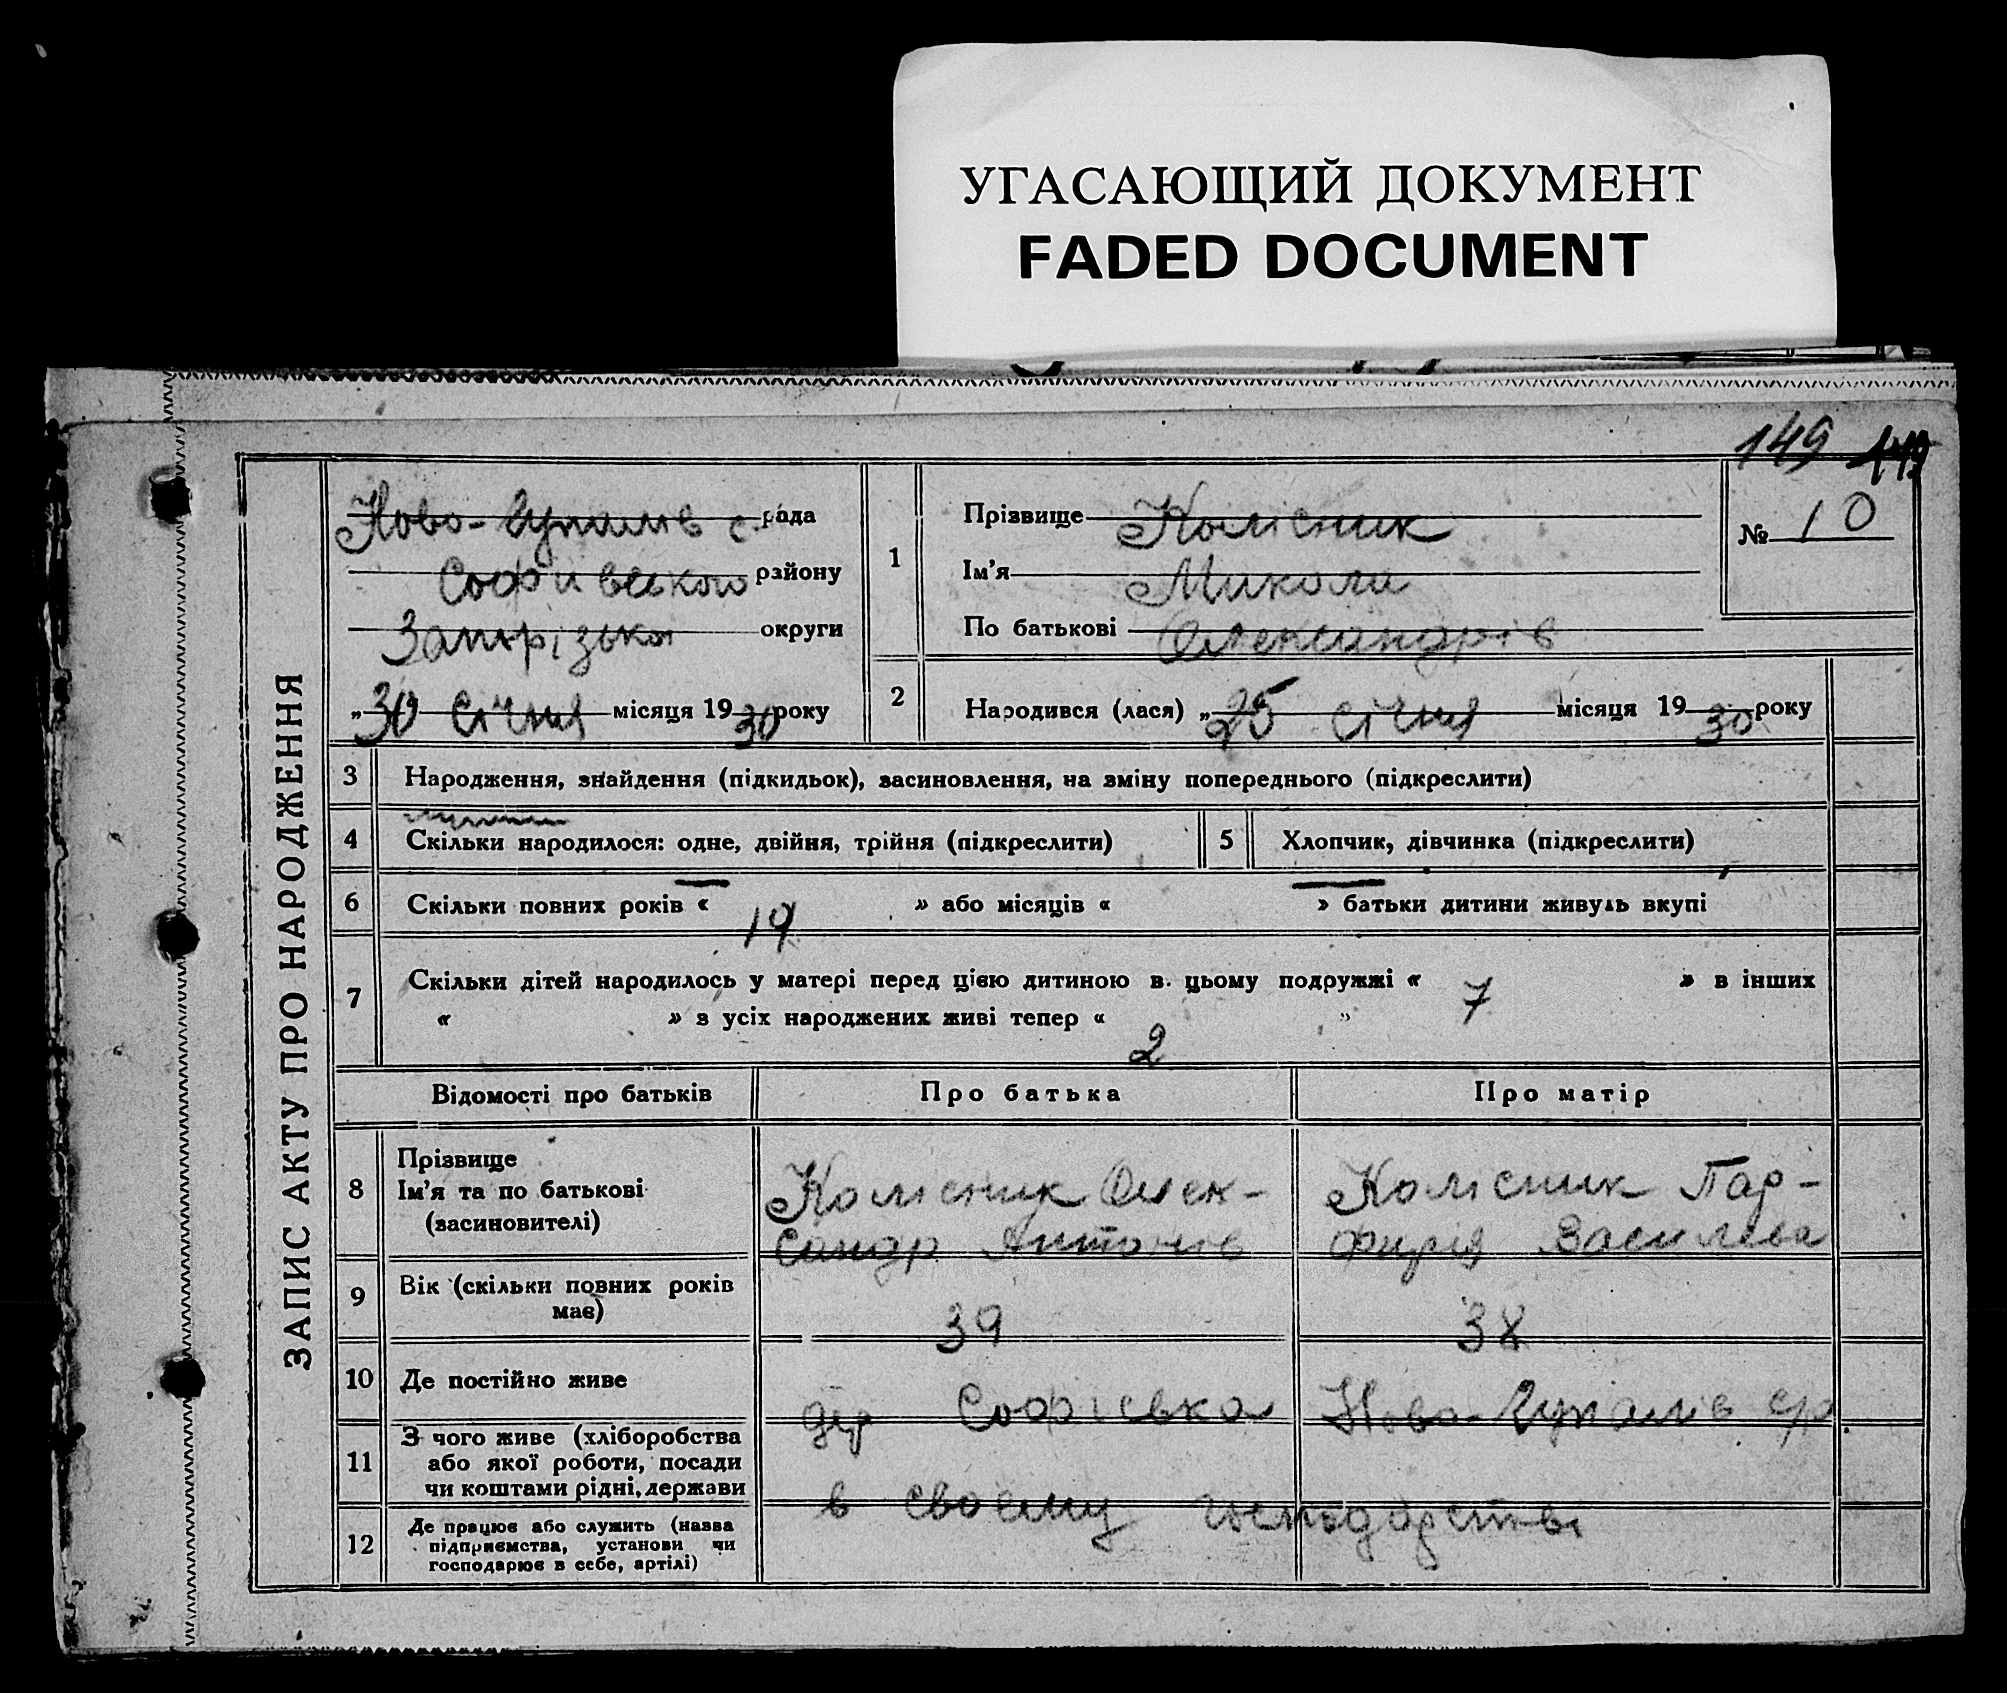 УГАСАЮЩИЙ ДОКУМЕНТ
FADED DOCUMENT
149 149
ЗАПИС АКТУ ПРО НАРОДЖЕННЯ
Ново-Гупалів с. рада
Софиівського району
Запорізької округи
„30 Січня місяця 1930 року
1
Прізвище Колісник
Ім’я Микола
По батькові Олександрів
№ 10
2
Народився (лася) „25 січня місяця 1930 року
3 Народження, знайдення (підкидьок), засиновлення, на зміну попереднього (підкреслити)
4 Скільки народилося: одне, двійня, трійня (підкреслити)
5 Хлопчик, дівчинка (підкреслити)
6 Скільки повних років « 19 » або місяців « » батьки дитини живуть вкупі
7 Скільки дітей народилось у матері перед цією дитиною в цьому подружжі « 7 » в інших
« » з усіх народжених живі тепер « 2 »
Відомості про батьків Про батька Про матір
8 Прізвище
Ім’я та по батькові
(засиновителі)
Колісник Олек-
сандр Антонів
Колісник Пар-
фирія Василева
9 Вік (скільки повних років
має)
39 38
10 Де постійно живе
дер Софіевка Ново-Гупалів с/р
11 З чого живе (хліборобства
або якої роботи, посади
чи коштами рідні, держави
в своему господарстві
12 Де працює або служить (назва
підприємства, установи чи
господарює в себе, артілі)